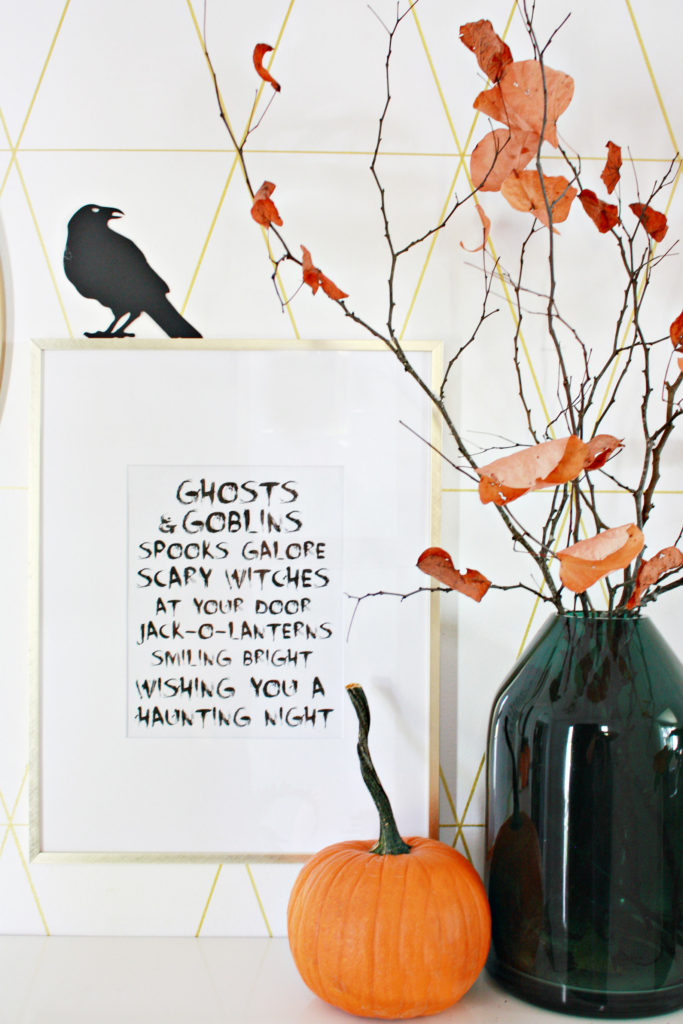 GHOSTS
& GOBLINS
SPOOKS GALORE
SCARY WITCHES
AT YOUR DOOR
JACK-O-LANTERNS
SMILING BRIGHT
WISHING YOU A
HAUNTING NIGHT